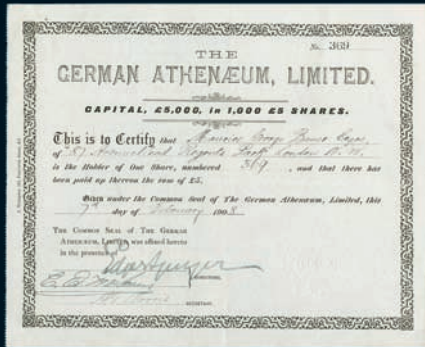 No. 369
THE
GERMAN ATHENÆUM, LIMITED.
CAPITAL, £5,000, in 1,000 £5 SHARES.
This is to Certify that Maurice George
of Regents Park London N.W.
is the Holder of One Share, numbered 369, and that there has
been paid up thereon the sum of £5.
Given under the Common Seal of The German Athenæum, Limited, this
7th day of February 1908
THE COMMON SEAL OF THE GERMAN
ATHENÆUM, LIMITED, was affixed hereto
in the presence of
SECRETARY.